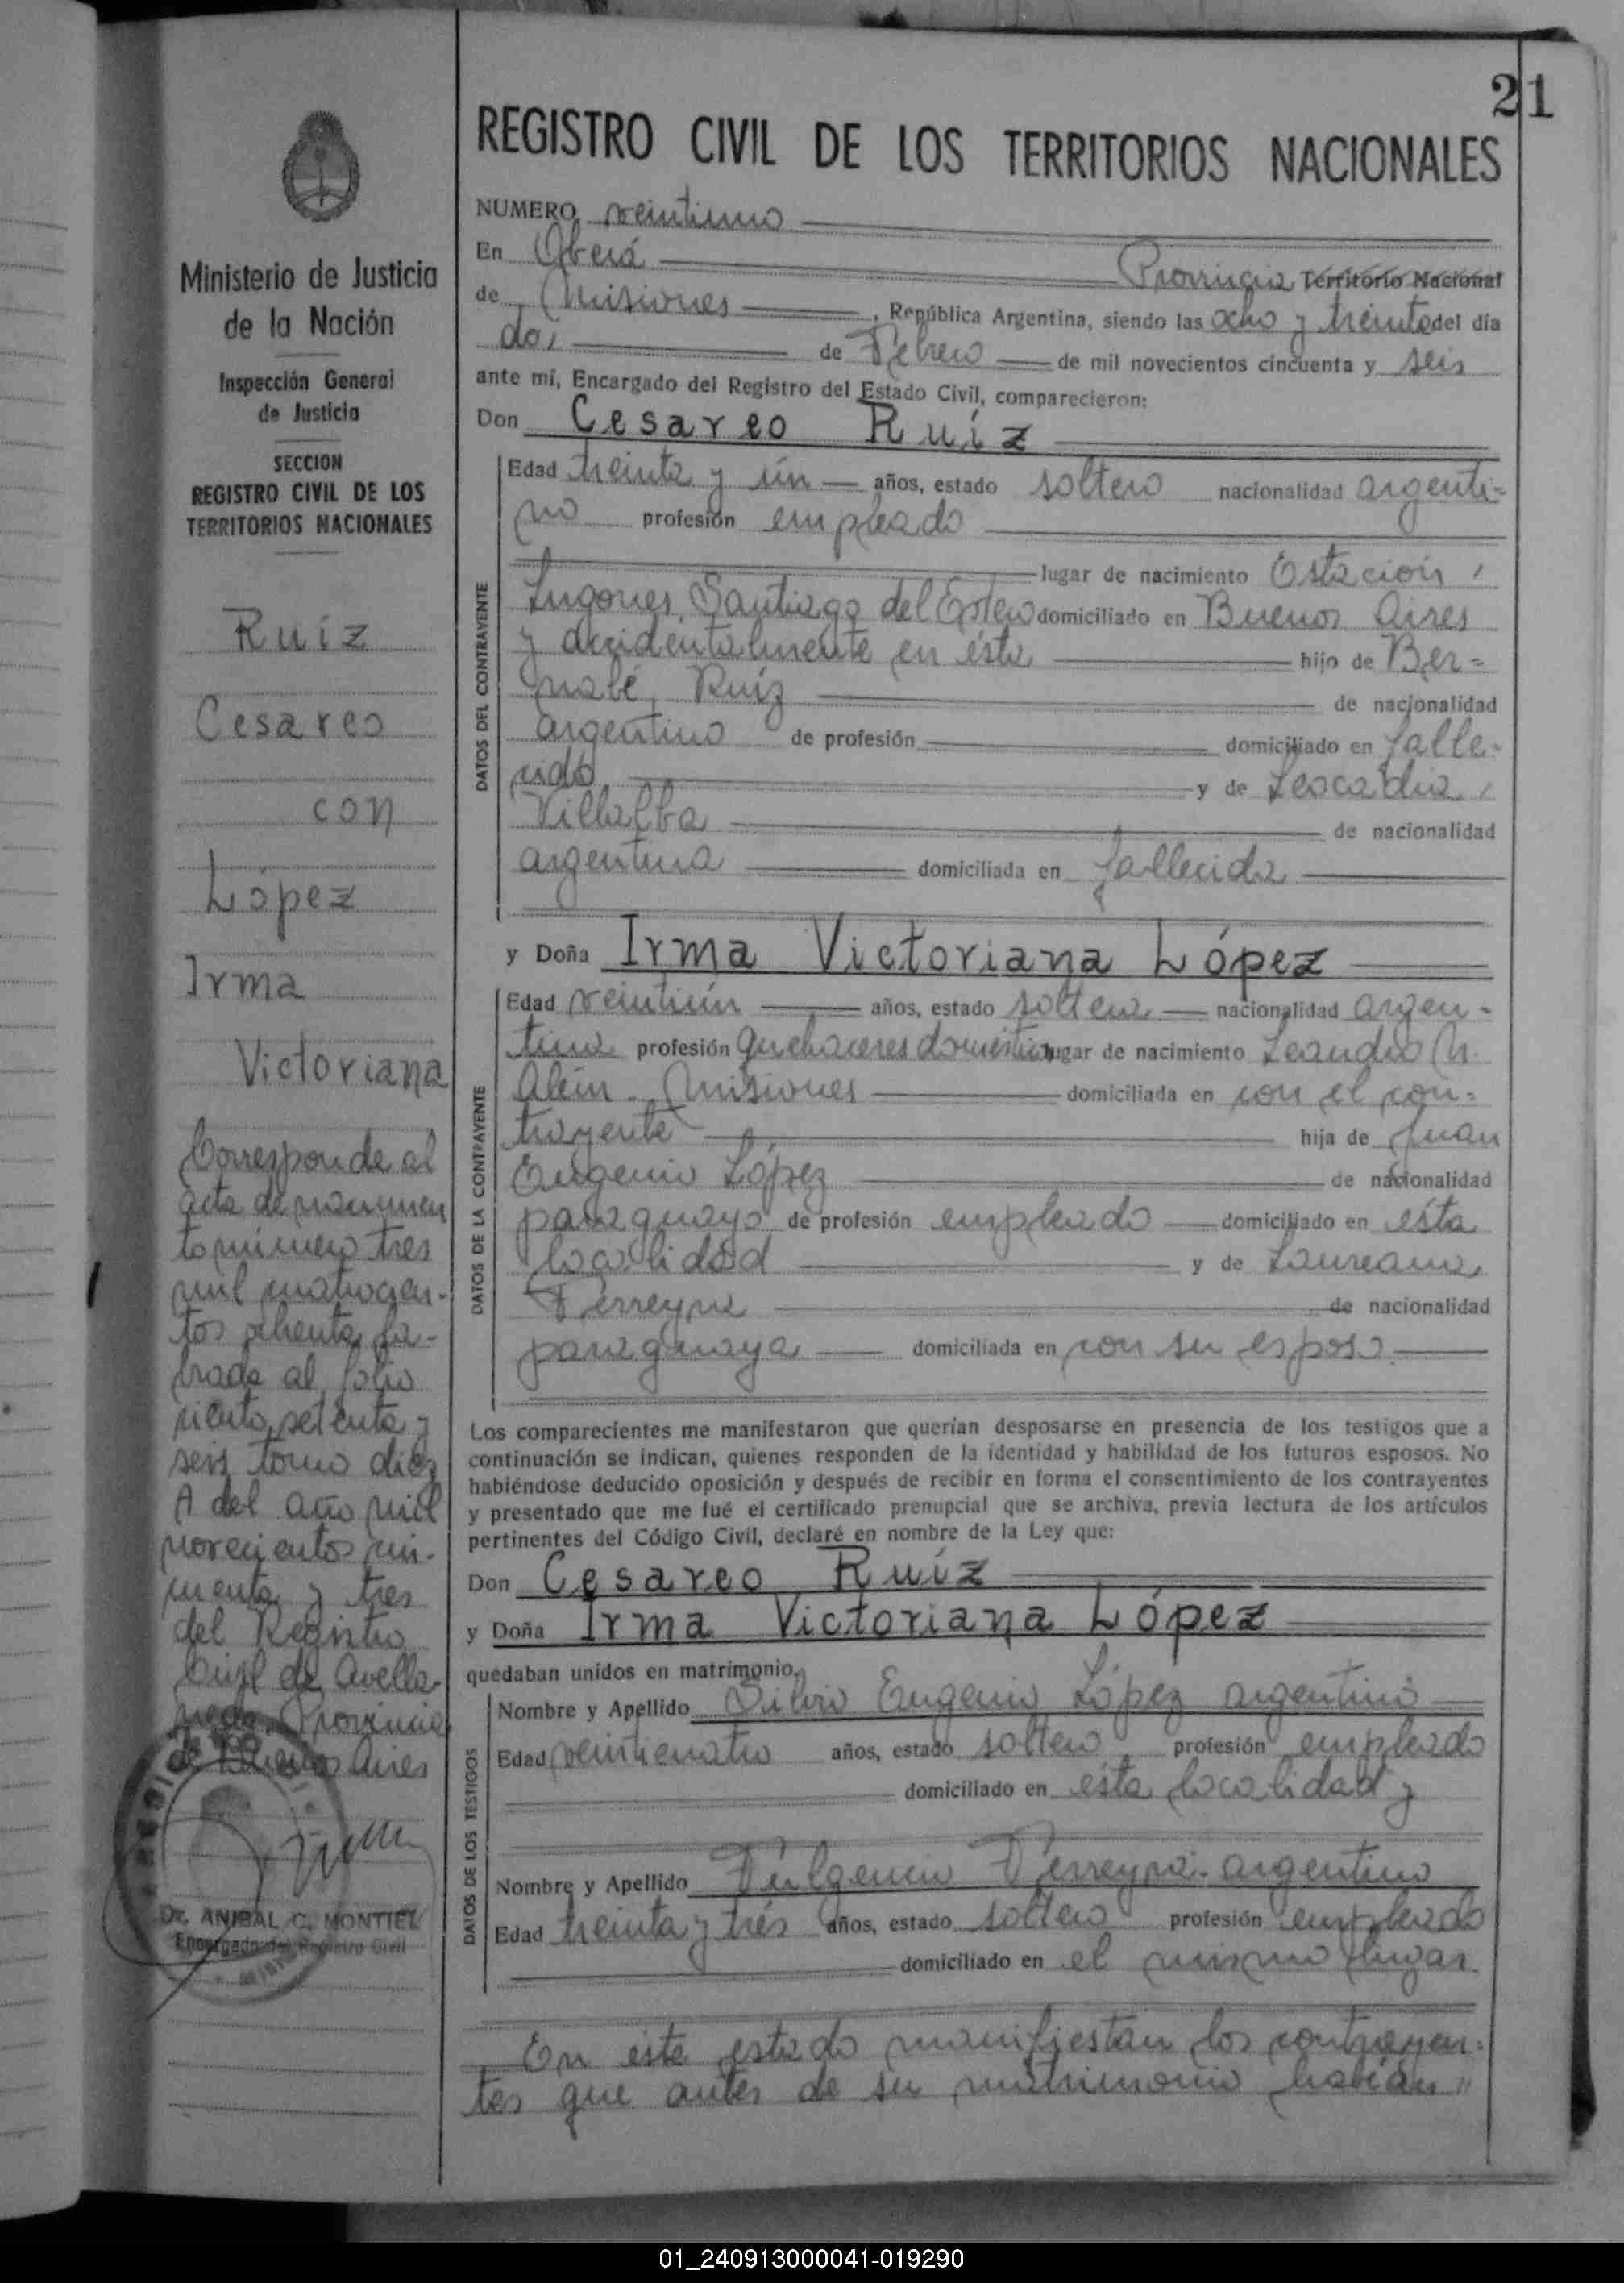 21
REGISTRO CIVIL DE LOS TERRITORIOS NACIONALES
Ministerio de Justicia
de la Nación
Inspección General
de Justicia
SECCION
REGISTRO CIVIL DE LOS
TERRITORIOS NACIONALES
Ruíz
Cesareo
con
López
Irma
Victoriana
Corresponde al
acta de nacimien
to número tres
mil cuatrocien-
tos ochenta, la-
brada al folio
ciento setenta y
seis tomo diez
A del año mil
novecientos cin-
cuenta y tres
del Registro
Civil de Avella-
neda, Provincia
de Buenos Aires
Dr. ANIBAL C. MONTIEL
Encargado del Registro Civil
NUMERO veintiuno
En Oberá Provincia Territorio Nacional
de Misiones, República Argentina, siendo las ocho y treinta del día
dos de Febrero de mil novecientos cincuenta y seis
ante mí, Encargado del Registro del Estado Civil, comparecieron:
Don Cesareo Ruíz
DATOS DEL CONTRAYENTE
Edad treinta y ún años, estado soltero nacionalidad argenti=
no profesión empleado
lugar de nacimiento Estación
Lugones, Santiago del Estero domiciliado en Buenos Aires
y accidentalmente en ésta hijo de Ber=
nabé Ruíz de nacionalidad
argentino de profesión domiciliado en falle-
cido y de Leocadia
Villalba de nacionalidad
argentina domiciliada en fallecida
y Doña Irma Victoriana López
DATOS DE LA CONTRAYENTE
Edad veintiún años, estado soltera nacionalidad argen-
tina profesión quehaceres domésticos lugar de nacimiento Leandro N.
Alem - Misiones domiciliada en con el con=
trayente hija de Juan
Eugenio López de nacionalidad
paraguayo de profesión empleado domiciliado en ésta
localidad y de Laureana
Ferreyra de nacionalidad
paraguaya domiciliada en con su esposo.
Los comparecientes me manifestaron que querían desposarse en presencia de los testigos que a
continuación se indican, quienes responden de la identidad y habilidad de los futuros esposos. No
habiéndose deducido oposición y después de recibir en forma el consentimiento de los contrayentes
y presentado que me fué el certificado prenupcial que se archiva, previa lectura de los artículos
pertinentes del Código Civil, declaré en nombre de la Ley que:
Don Cesareo Ruíz
y Doña Irma Victoriana López
quedaban unidos en matrimonio.
DATOS DE LOS TESTIGOS
Nombre y Apellido Silvio Eugenio López argentino
Edad veinticuatro años, estado soltero profesión empleado
domiciliado en ésta localidad y
Nombre y Apellido Fulgencio Ferreyra - argentino
Edad treinta y trés años, estado soltero profesión empleado
domiciliado en el mismo lugar.
En este estado manifiestan los contrayen=
tes que antes de su matrimonio habían "
01_240913000041-019290